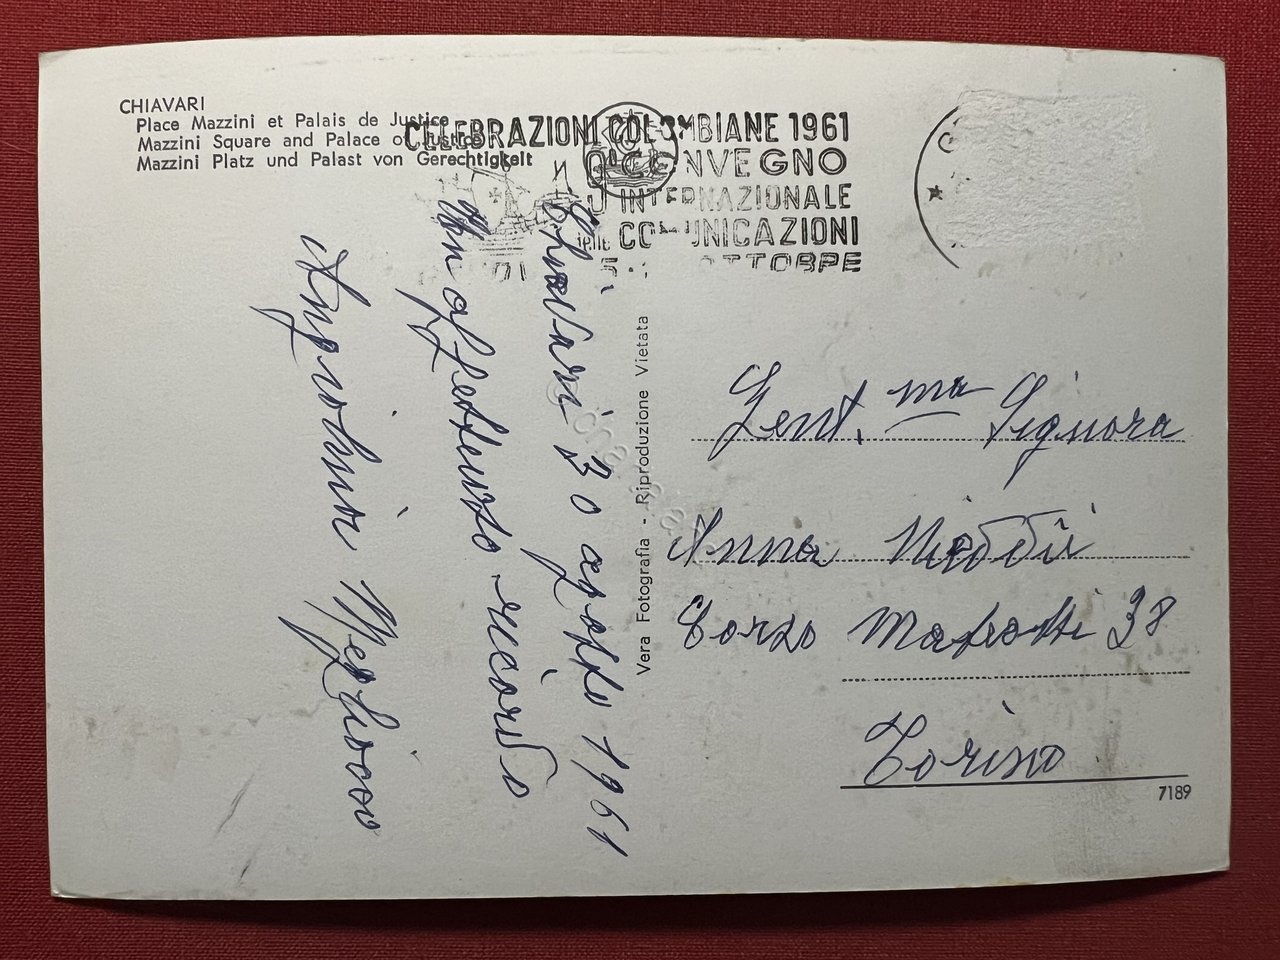 CHIAVARI
Place Mazzini et Palais de Justice
Mazzini Square and Palace of Justice
Mazzini Platz und Palast von Gerechtigkeit
CELEBRAZIONI COLOMBIANE 1961
CONVEGNO
INTERNAZIONALE
COMUNICAZIONI
OTTOBRE
Chiavari 30 agosto 1961
Un affettuoso ricordo
Vera Fotografia - Riproduzione Vietata
Gent.ma Signora
Anna
Corso 38
Torino
7189